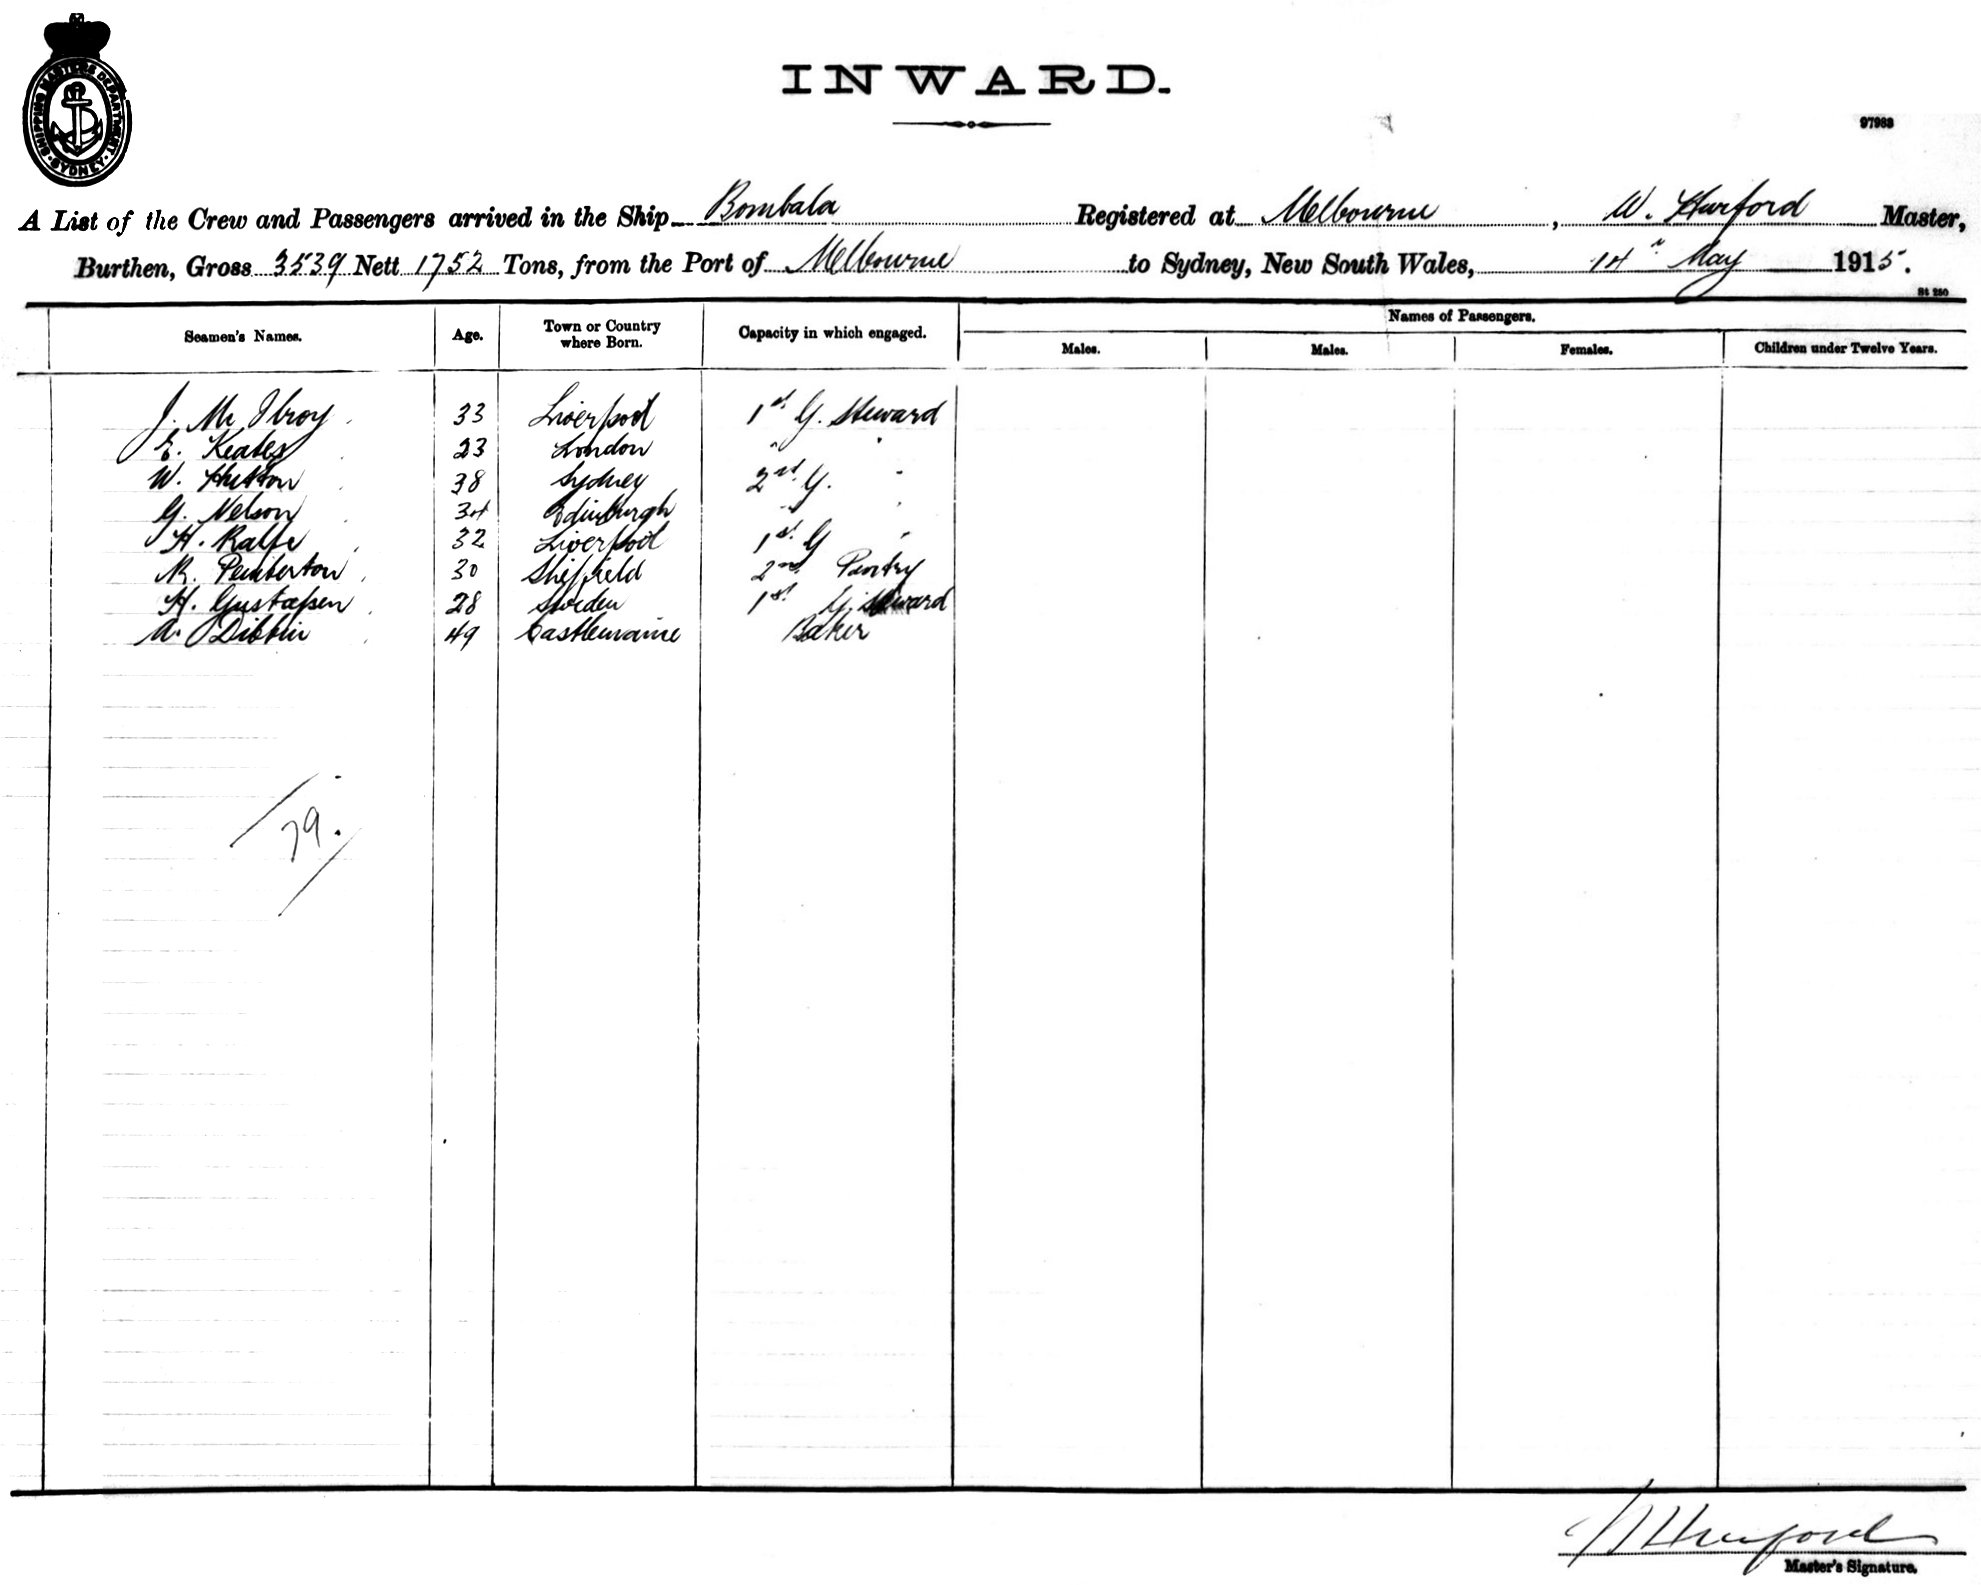 SHIPPING MASTERS DEPARTMENT · SYDNEY ·
INWARD.
97983
A List of the Crew and Passengers arrived in the Ship Bombala Registered at Melbourne, W. Hurford Master,
Burthen, Gross 3539 Nett 1752 Tons, from the Port of Melbourne to Sydney, New South Wales, 14th May 1915.
St 250
Names of Passengers.
Seamen's Names. Age. Town or Country where Born. Capacity in which engaged. Males. Males. Females. Children under Twelve Years.
J. Mc Ilroy 33 Liverpool 1st G. Steward
E. Keates 23 London " "
W. Hutton 38 Sydney 2nd G. "
G. Nelson 34 Edinburgh " "
H. Ralfe 32 Liverpool 1st G "
R. Pemberton 30 Sheffield 2nd Pantry
H. Gustafsen 28 Sweden 1st G. Steward
A. Dibbin 49 Castlemaine Baker
79.
W Hurford
Master's Signature.